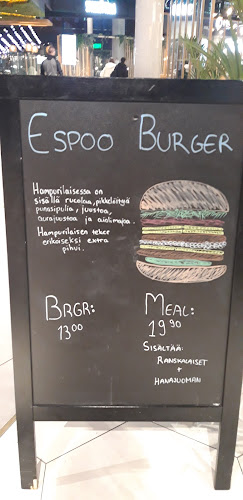 ESPOO BURGER
Hampurilaisessa on
sisällä rucolaa, pikkelöityä
punasipulia, juustoa,
aurajuustoa ja aiolimajoa.
Hampurilaisen tekee
erikoiseksi extra
pihvi.
BRGR:
13.00
MEAL:
19.90
SISÄLTÄÄ:
RANSKALAISET
+
HANAJUOMAN